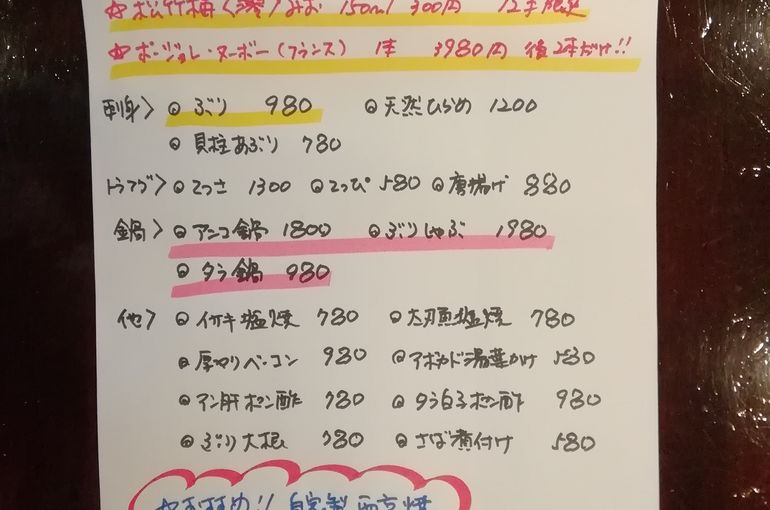 ☆松竹梅(澪)みお 150ml 300円 12本限定
☆ボージョレ・ヌーボー(フランス) 1本 3980円 後2本だけ!!
刺身> ◎ぶり 980 ◎天然ひらめ 1200
◎貝柱あぶり 780
トラフグ> ◎てっさ 1300 ◎てっぴ 580 ◎唐揚げ 880
鍋> ◎アンコ鍋 1800 ◎ぶりしゃぶ 1980
◎タラ鍋 980
他> ◎イサキ塩焼 780 ◎太刀魚塩焼 780
◎厚切りベーコン 980 ◎アボカド湯葉かけ 580
◎アン肝ポン酢 780 ◎タラ白子ポン酢 980
◎ぶり大根 780 ◎さば煮付け 580
☆おすすめ!! 自家製西京焼